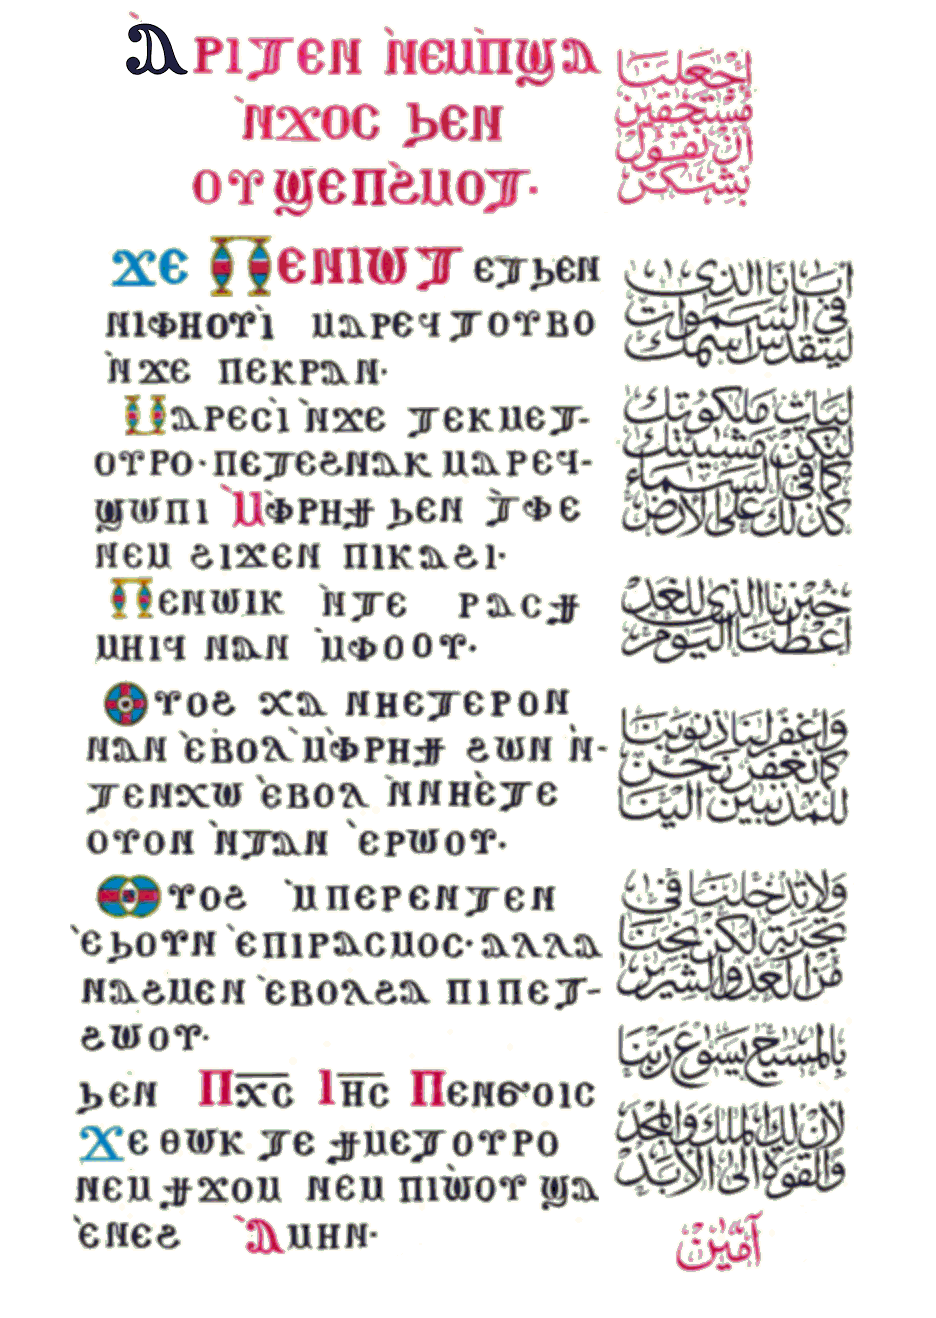 Ⲁ̀ⲣⲓⲧⲉⲛ ⲛ̀ⲉⲙⲡ̀ϣⲁ
ⲛ̀ϫⲟⲥ ϧⲉⲛ
ⲟⲩ ϣⲉⲡϩ̀ⲙⲟⲧ·
ϫⲉ Ⲡⲉⲛⲓⲱⲧ ⲉⲧϧⲉⲛ
ⲛⲓⲫⲏⲟⲩⲓ̀ ⲙⲁⲣⲉϥⲧⲟⲩⲃⲟ
ⲛ̀ϫⲉ ⲡⲉⲕⲣⲁⲛ·
Ⲙⲁⲣⲉⲥⲓ̀ ⲛ̀ϫⲉ ⲧⲉⲕⲙⲉⲧ-
ⲟⲩⲣⲟ· ⲡⲉⲧⲉϩⲛⲁⲕ ⲙⲁⲣⲉϥ-
ϣⲱⲡⲓ ⲙ̀ⲫⲣⲏϯ ϧⲉⲛ ⲧ̀ⲫⲉ
ⲛⲉⲙ ϩⲓϫⲉⲛ ⲡⲓⲕⲁϩⲓ·
Ⲡⲉⲛⲱⲓⲕ ⲛ̀ⲧⲉ ⲣⲁⲥϯ
ⲙⲏⲓϥ ⲛⲁⲛ ⲙ̀ⲫⲟⲟⲩ·
Ⲟⲩⲟϩ ⲭⲁ ⲛⲏⲉⲧⲉⲣⲟⲛ
ⲛⲁⲛ ⲉ̀ⲃⲟⲗ ⲙ̀ⲫⲣⲏϯ ϩⲱⲛ ⲛ̀-
ⲧⲉⲛⲭⲱ ⲉ̀ⲃⲟⲗ ⲛ̀ⲛⲏⲉ̀ⲧⲉ
ⲟⲩⲟⲛ ⲛ̀ⲧⲁⲛ ⲉ̀ⲣⲱⲟⲩ·
Ⲟⲩⲟϩ ⲙ̀ⲡⲉⲣⲉⲛⲧⲉⲛ
ⲉ̀ϧⲟⲩⲛ ⲉ̀ⲡⲓⲣⲁⲥⲙⲟⲥ· ⲁⲗⲗⲁ
ⲛⲁϩⲙⲉⲛ ⲉ̀ⲃⲟⲗϩⲁ ⲡⲓⲡⲉⲧ-
ϩⲱⲟⲩ·
ϧⲉⲛ Ⲡⲭ̅ⲥ̅ Ⲓⲏ̅ⲥ̅ Ⲡⲉⲛϭⲟⲓⲥ
Ϫⲉ ⲑⲱⲕ ⲧⲉ ϯⲙⲉⲧⲟⲩⲣⲟ
ⲛⲉⲙ ϯϫⲟⲙ ⲛⲉⲙ ⲡⲓⲱ̀ⲟⲩ ϣⲁ
ⲉ̀ⲛⲉϩ Ⲁ̀ⲙⲏⲛ·
إجعلنا
مستحقين
ان نقول
بشكر
أبانا الذى
فى السموات
ليتقدس اسمك
ليأت ملكوتك
لتكن مشيئتك
كما فى السماء
كذلك على الارض
خبزنا الذى للغد
اعطنا اليوم
واغفر لنا ذنوبنا
كما نغفر نحن
للمذنبين الينا
ولا تدخلنا فى
تجربة لكن نجنا
من العدو الشرير
بالمسيح يسوع ربنا
لان لك الملك والمجد
والقوة الى الابد
آمين